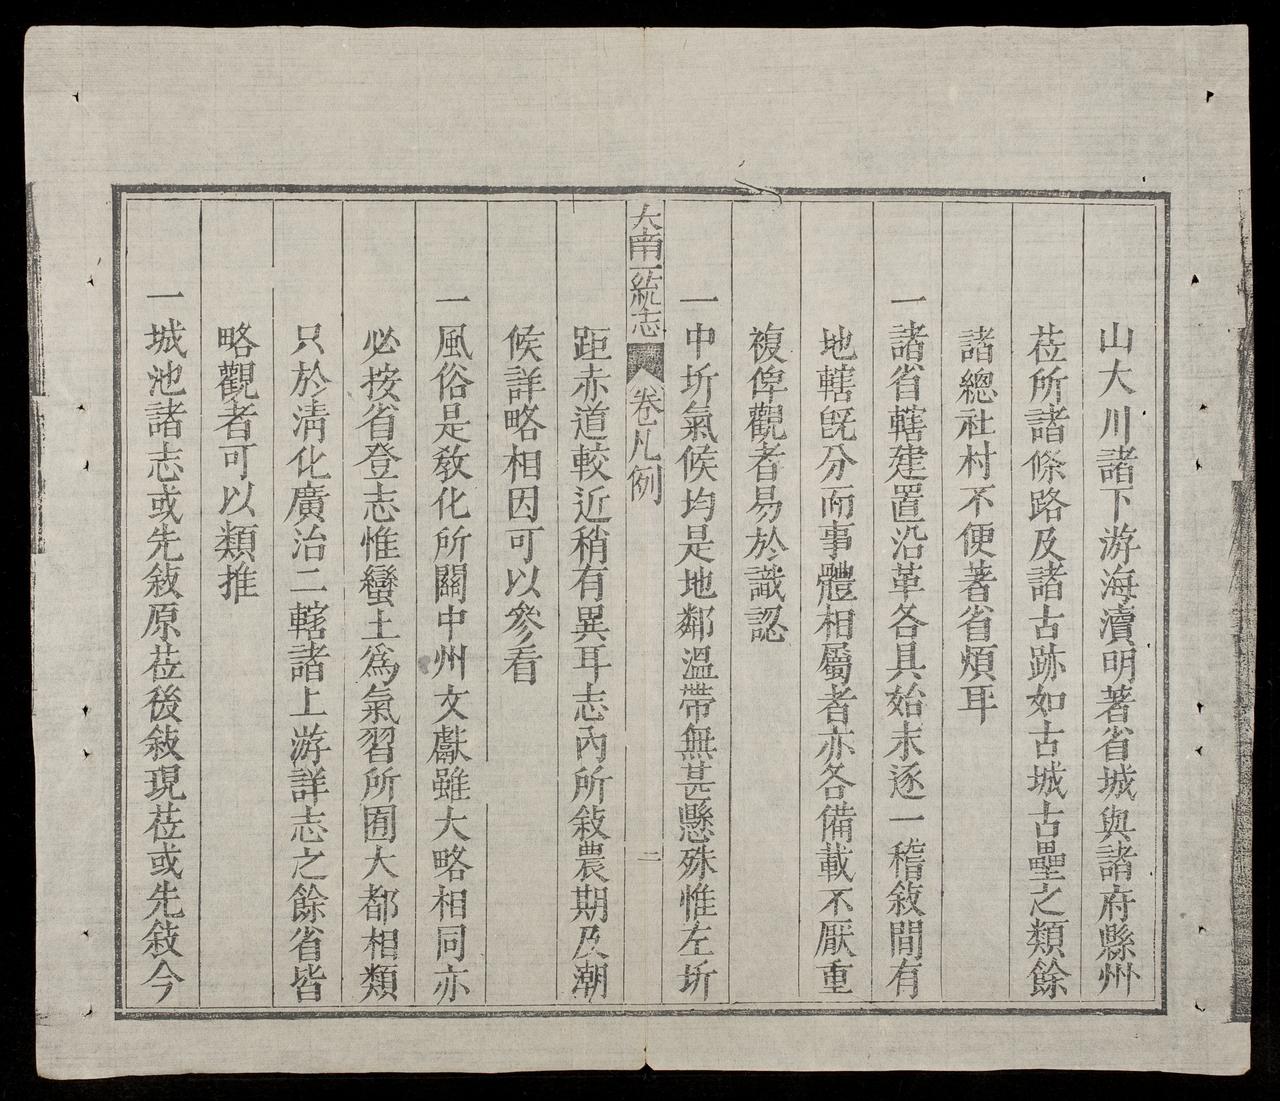 山大川諸下游海瀆明著省城與諸府縣州
莅所諸條路及諸古跡如古城古壘之類餘
諸總社村不便著省煩耳
一諸省轄建置沿革各具始末逐一稽敘間有
地轄旣分而事體相屬者亦各備載不厭重
複俾觀者易於識認
一中圻氣候均是地鄰溫帶無甚懸殊惟左圻
大南一統志 卷凡例 二
距赤道較近稍有異耳志內所敘農期及潮
候詳略相因可以參看
一風俗是敎化所關中州文獻雖大略相同亦
必按省登志惟蠻土爲氣習所囿大都相類
只於淸化廣治二轄諸上游詳志之餘省皆
略觀者可以類推
一城池諸志或先敘原莅後敘現莅或先敘今